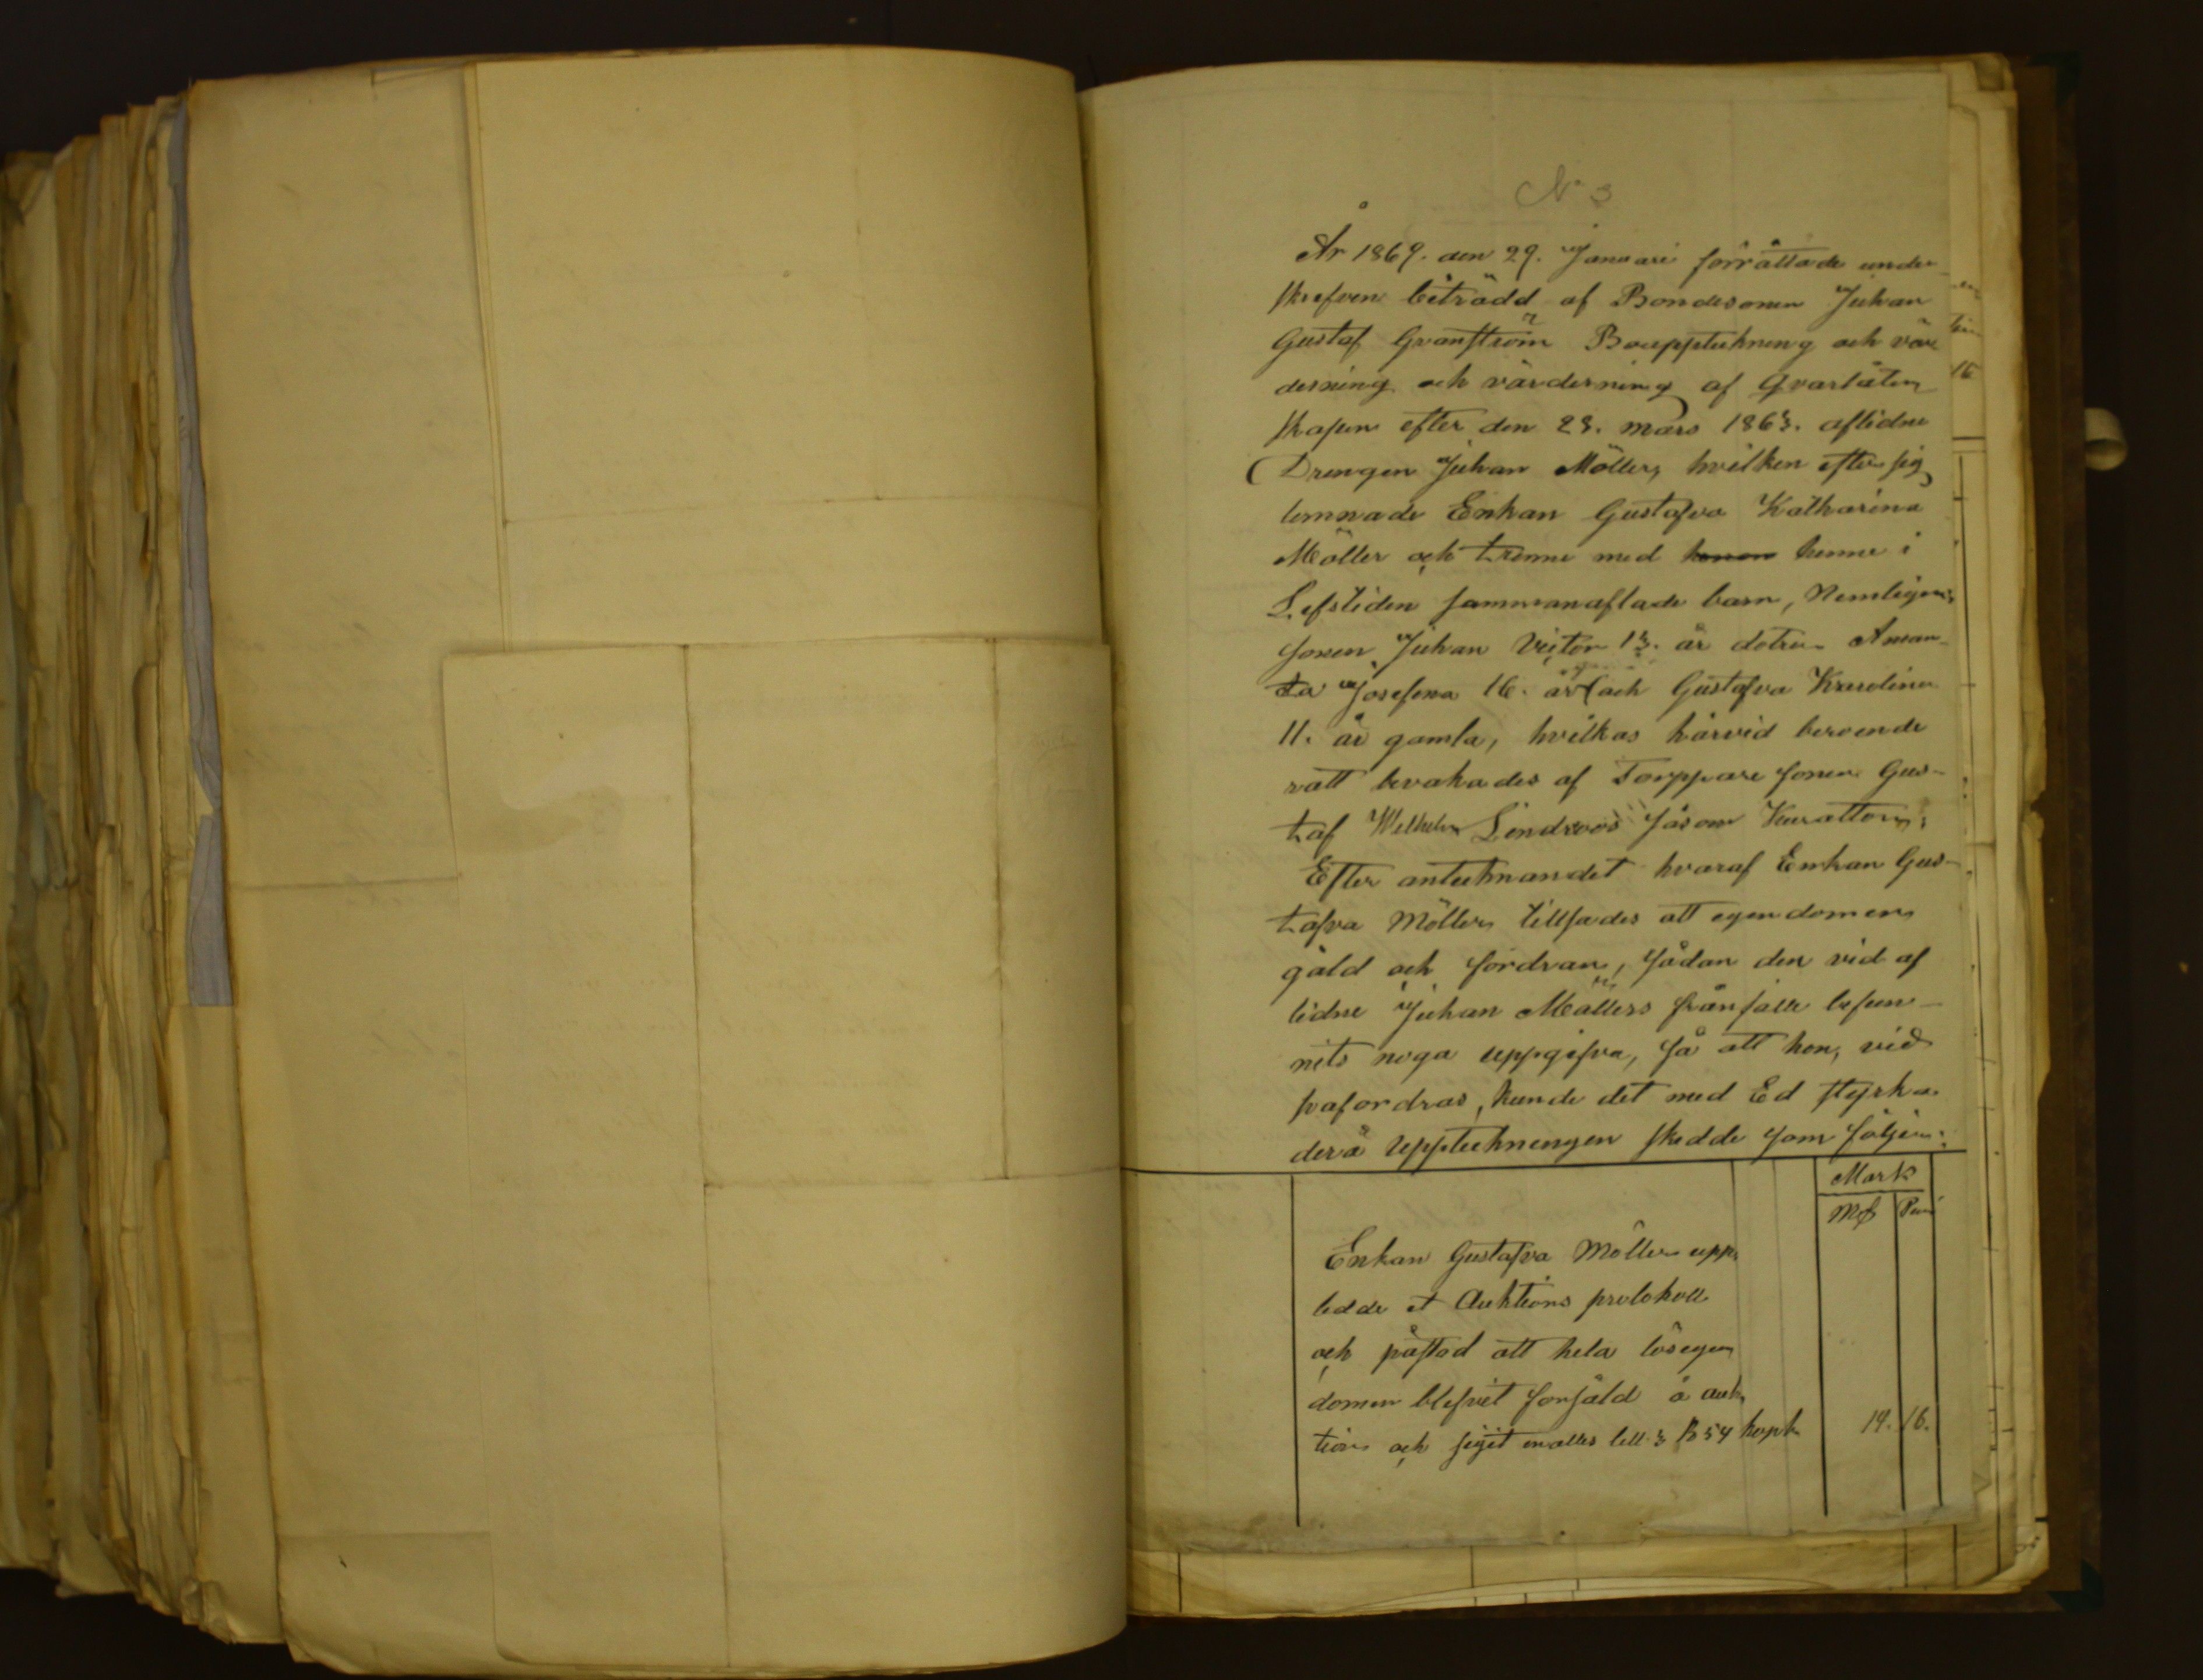 N° 3
År 1869. den 29. Januari förrättade under-
skrefven biträdd af Bondesonen Juhan
Gustaf Granström Bouppteckning och vär
desning och värdesning af Qvarlåten
skapen efter den 23. mars 1863. aflidne
Drengen Juhan Möller, hvilken efter sig
lemnade Enkan Gustafva Katharina
Möller och trenne med honom henne i
Lifstiden sammanaflade barn, Nemligen;
sonen Juhan Victor 13. år dotren Aman-
da Josefina 16. år och Gustafva Karolina
11. år gamla, hvilkas härvid beroende
rätt bevakades af Torppare sonen Gus-
taf Wilhelm Lindroos såsom Kurattor;
Efter antecknandet hvaraf Enkan Gus-
tafva Möller tillsades att egendomen
gäld och fordran, sådan den vid af
lidne Juhan Möllers frånfälle befun-
nits noga uppgifva, så att hon, vid
påfordras, kunde det med Ed styrka
derå Uppteckningen skedde som följer:
Mark
Mk Pen
Enkan Gustafva Möller upp
tedde et Auktions protokoll
och påstod att hela lösegen
domen blefvit forsåld å auk
tion och stigit in alles till 3 R 54 kopk 14. 16.
16